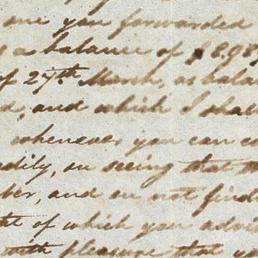 one you forwarded
s a balance of $8.98
of 27th March, as balan
d, and which I shal
whenever you can co
dily, on seeing that th
ber, and on not findi
ht of which you advis
with pleasure that yo